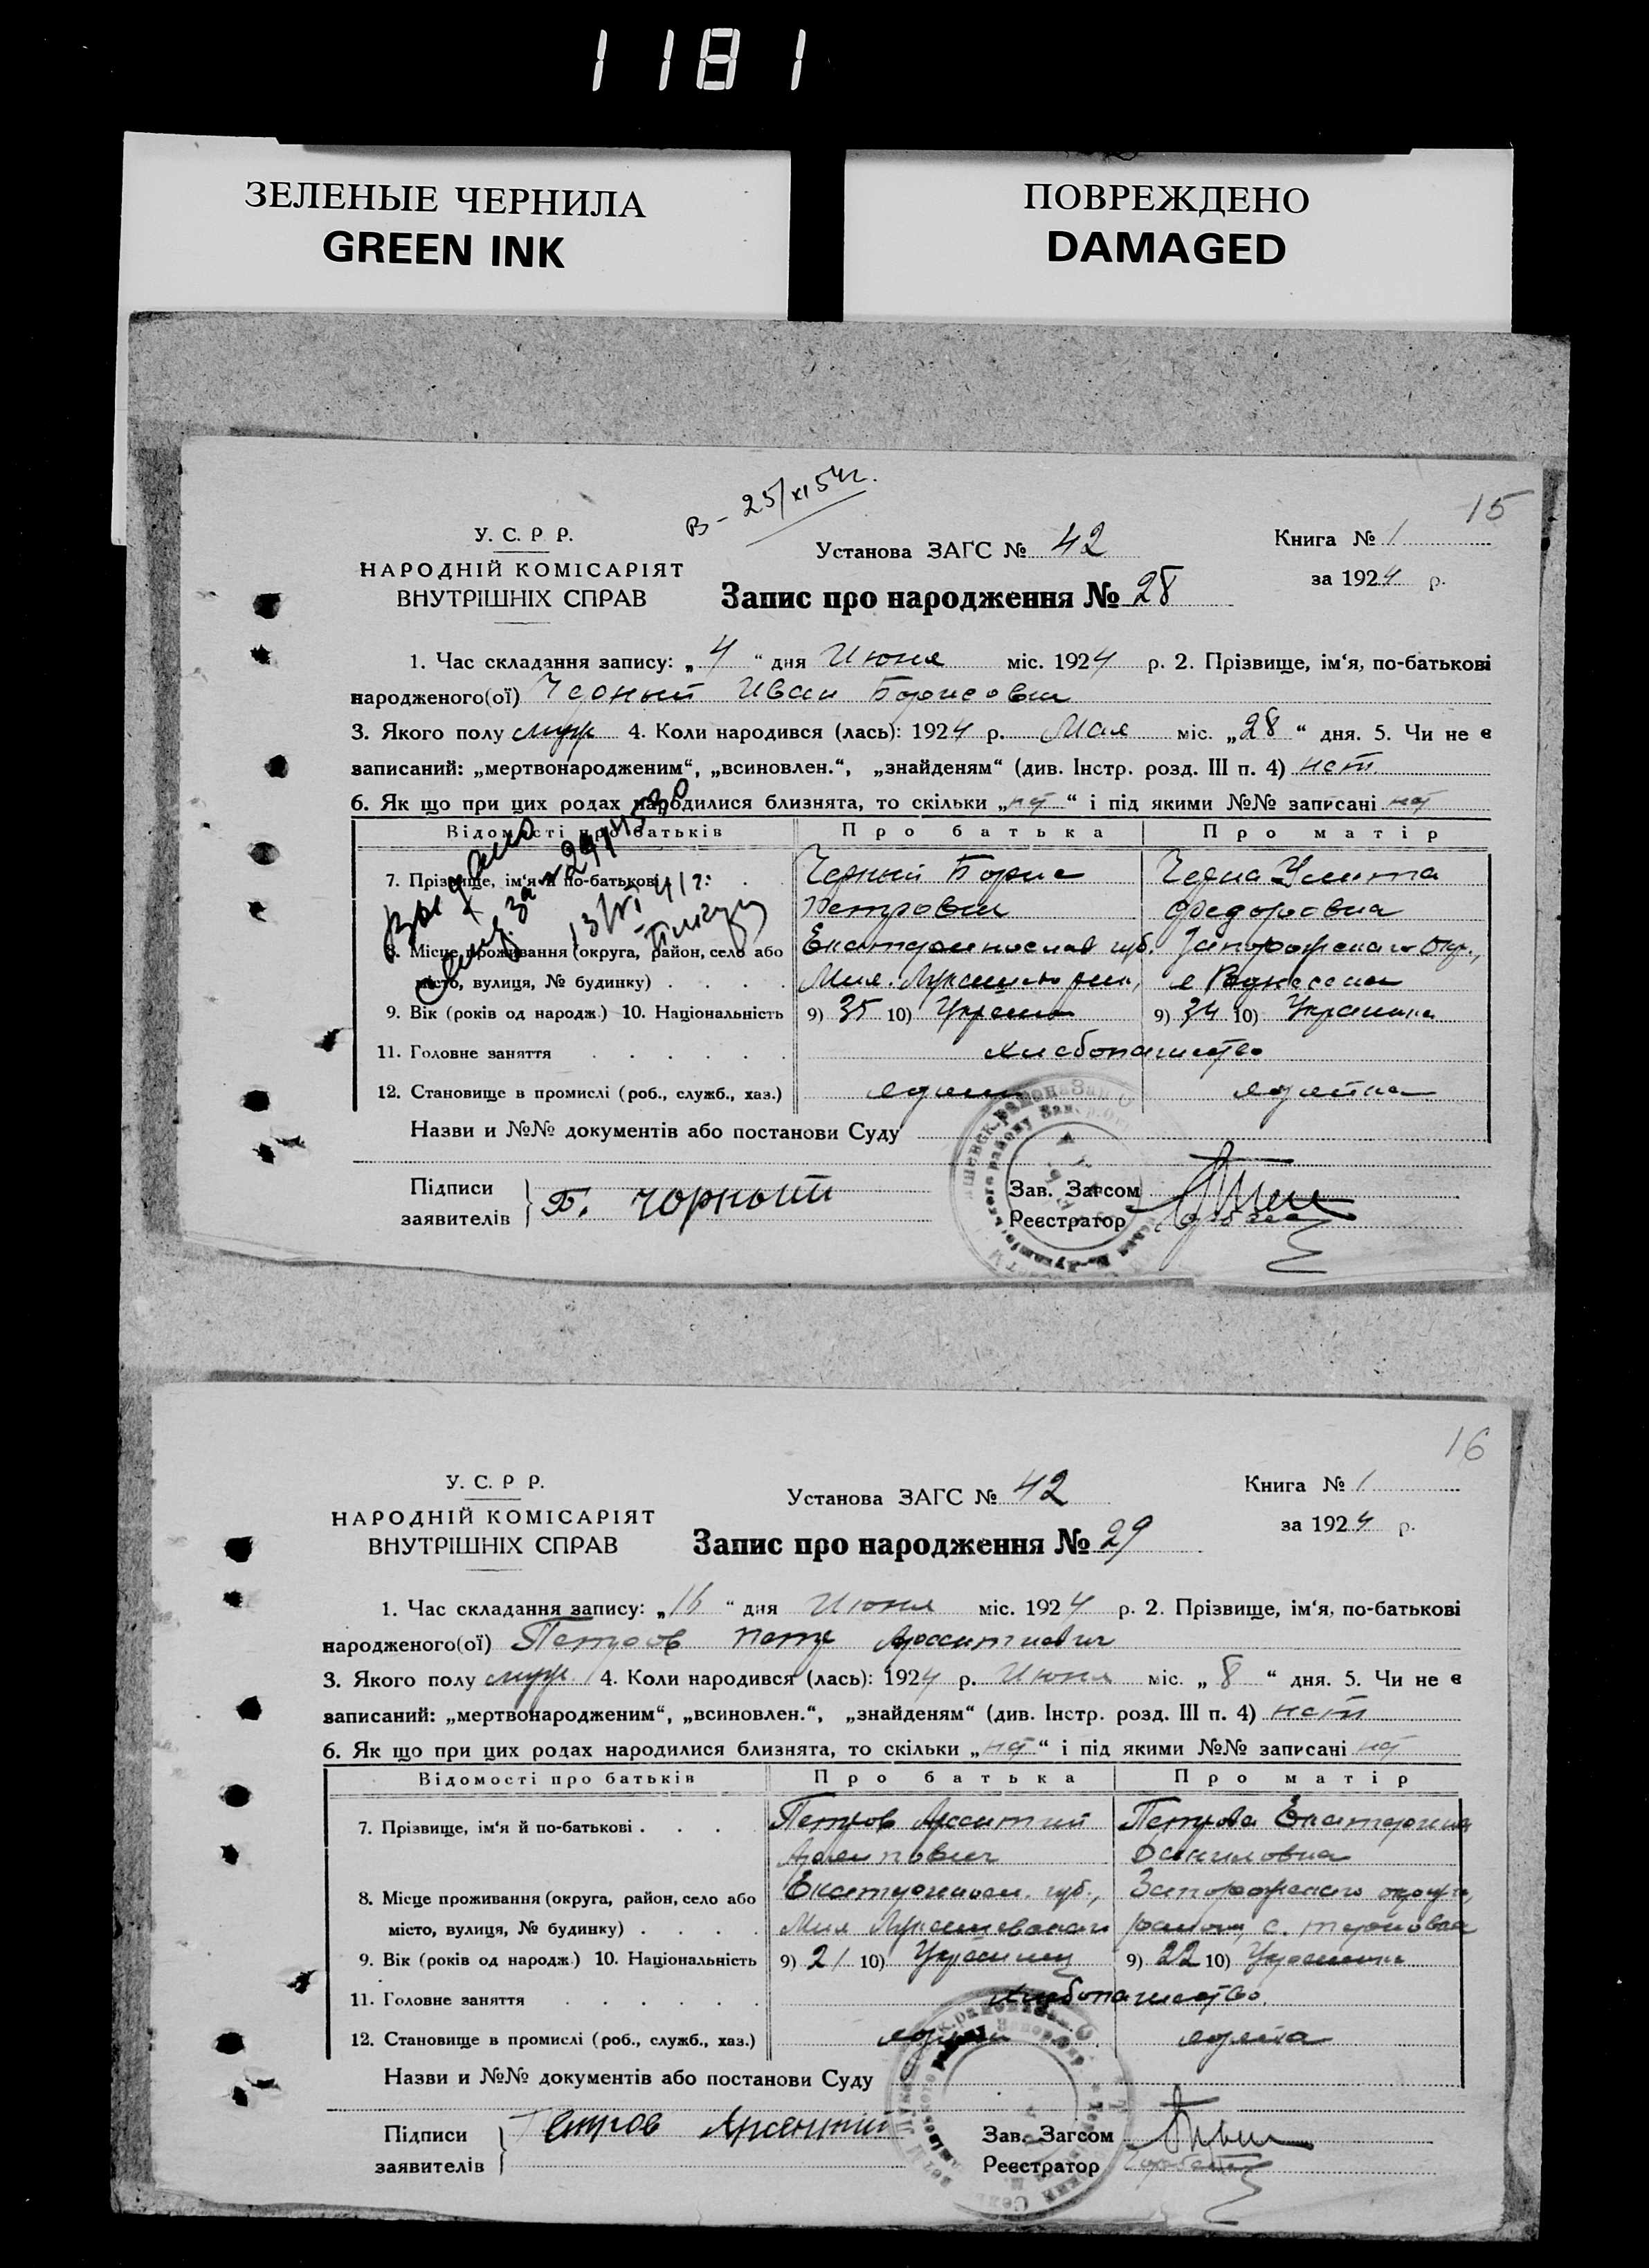 1181
ЗЕЛЕНЫЕ ЧЕРНИЛА
GREEN INK
ПОВРЕЖДЕНО
DAMAGED
В - 25/XI 54г.
15
У. С. Р Р.
НАРОДНІЙ КОМІСАРІЯТ
ВНУТРІШНІХ СПРАВ
Установа ЗАГС № 42
Книга № 1
за 1924 р.
Запис про народження № 28
1. Час складання запису: „ 4 “ дня Июня міс. 1924 р. 2. Прізвище, ім‘я, по-батькові
народженого(ої) Черный Иван Борисович
3. Якого полу муж 4. Коли народився (лась): 1924 р. Мая міс. „28 “ дня. 5. Чи не є
записаний: „мертвонародженим“, „всиновлен.“, „знайденям“ (див. Інстр. розд. III п. 4) нет
6. Як що при цих родах народилися близнята, то скільки „нет“ і під якими №№ записані нет
Відомості про батьків Про батька Про матір
7. Прізвище, ім‘я й по-батькові Черный Борис Черна Улита
Петрович Федоровна
8. Місце проживання (округа, район, село або Екатеринослав губ. Запорожскаго Окр.,
місто, вулиця, № будинку)
9. Вік (років од народж.) 10. Національність 9) 35 10) 9) 34 10) Украинка
11. Головне заняття хлебопашество
12. Становище в промислі (роб., служб., хаз.)
Назви и №№ документів або постанови Суду
Підписи
заявителів
Б. Чорный
Зав. Загсом
Реєстратор
16
У. С. Р Р.
НАРОДНІЙ КОМІСАРІЯТ
ВНУТРІШНІХ СПРАВ
Установа ЗАГС № 42
Книга № 1
за 1924 р.
Запис про народження № 29
1. Час складання запису: „16 “ дня Июня міс. 1924 р. 2. Прізвище, ім‘я, по-батькові
народженого(ої) Петров Петр Арсентиевич
3. Якого полу муж. 4. Коли народився (лась): 1924 р. Июня міс. „ 8 “ дня. 5. Чи не є
записаний: „мертвонародженим“, „всиновлен.“, „знайденям“ (див. Інстр. розд. III п. 4) нет
6. Як що при цих родах народилися близнята, то скільки „нет“ і під якими №№ записані нет
Відомості про батьків Про батька Про матір
7. Прізвище, ім‘я й по-батькові Петров Арсентий Петрова Екатерина
Даниловна
8. Місце проживання (округа, район, село або Екатеринослав. губ., Запорожскаго округа,
місто, вулиця, № будинку) района, с. Терновка
9. Вік (років од народж.) 10. Національність 9) 21 10) Украинец 9) 22 10) Украинка
11. Головне заняття хлебопашество.
12. Становище в промислі (роб., служб., хаз.)
Назви и №№ документів або постанови Суду
Підписи
заявителів
Петров Арсентий
Зав. Загсом
Реєстратор